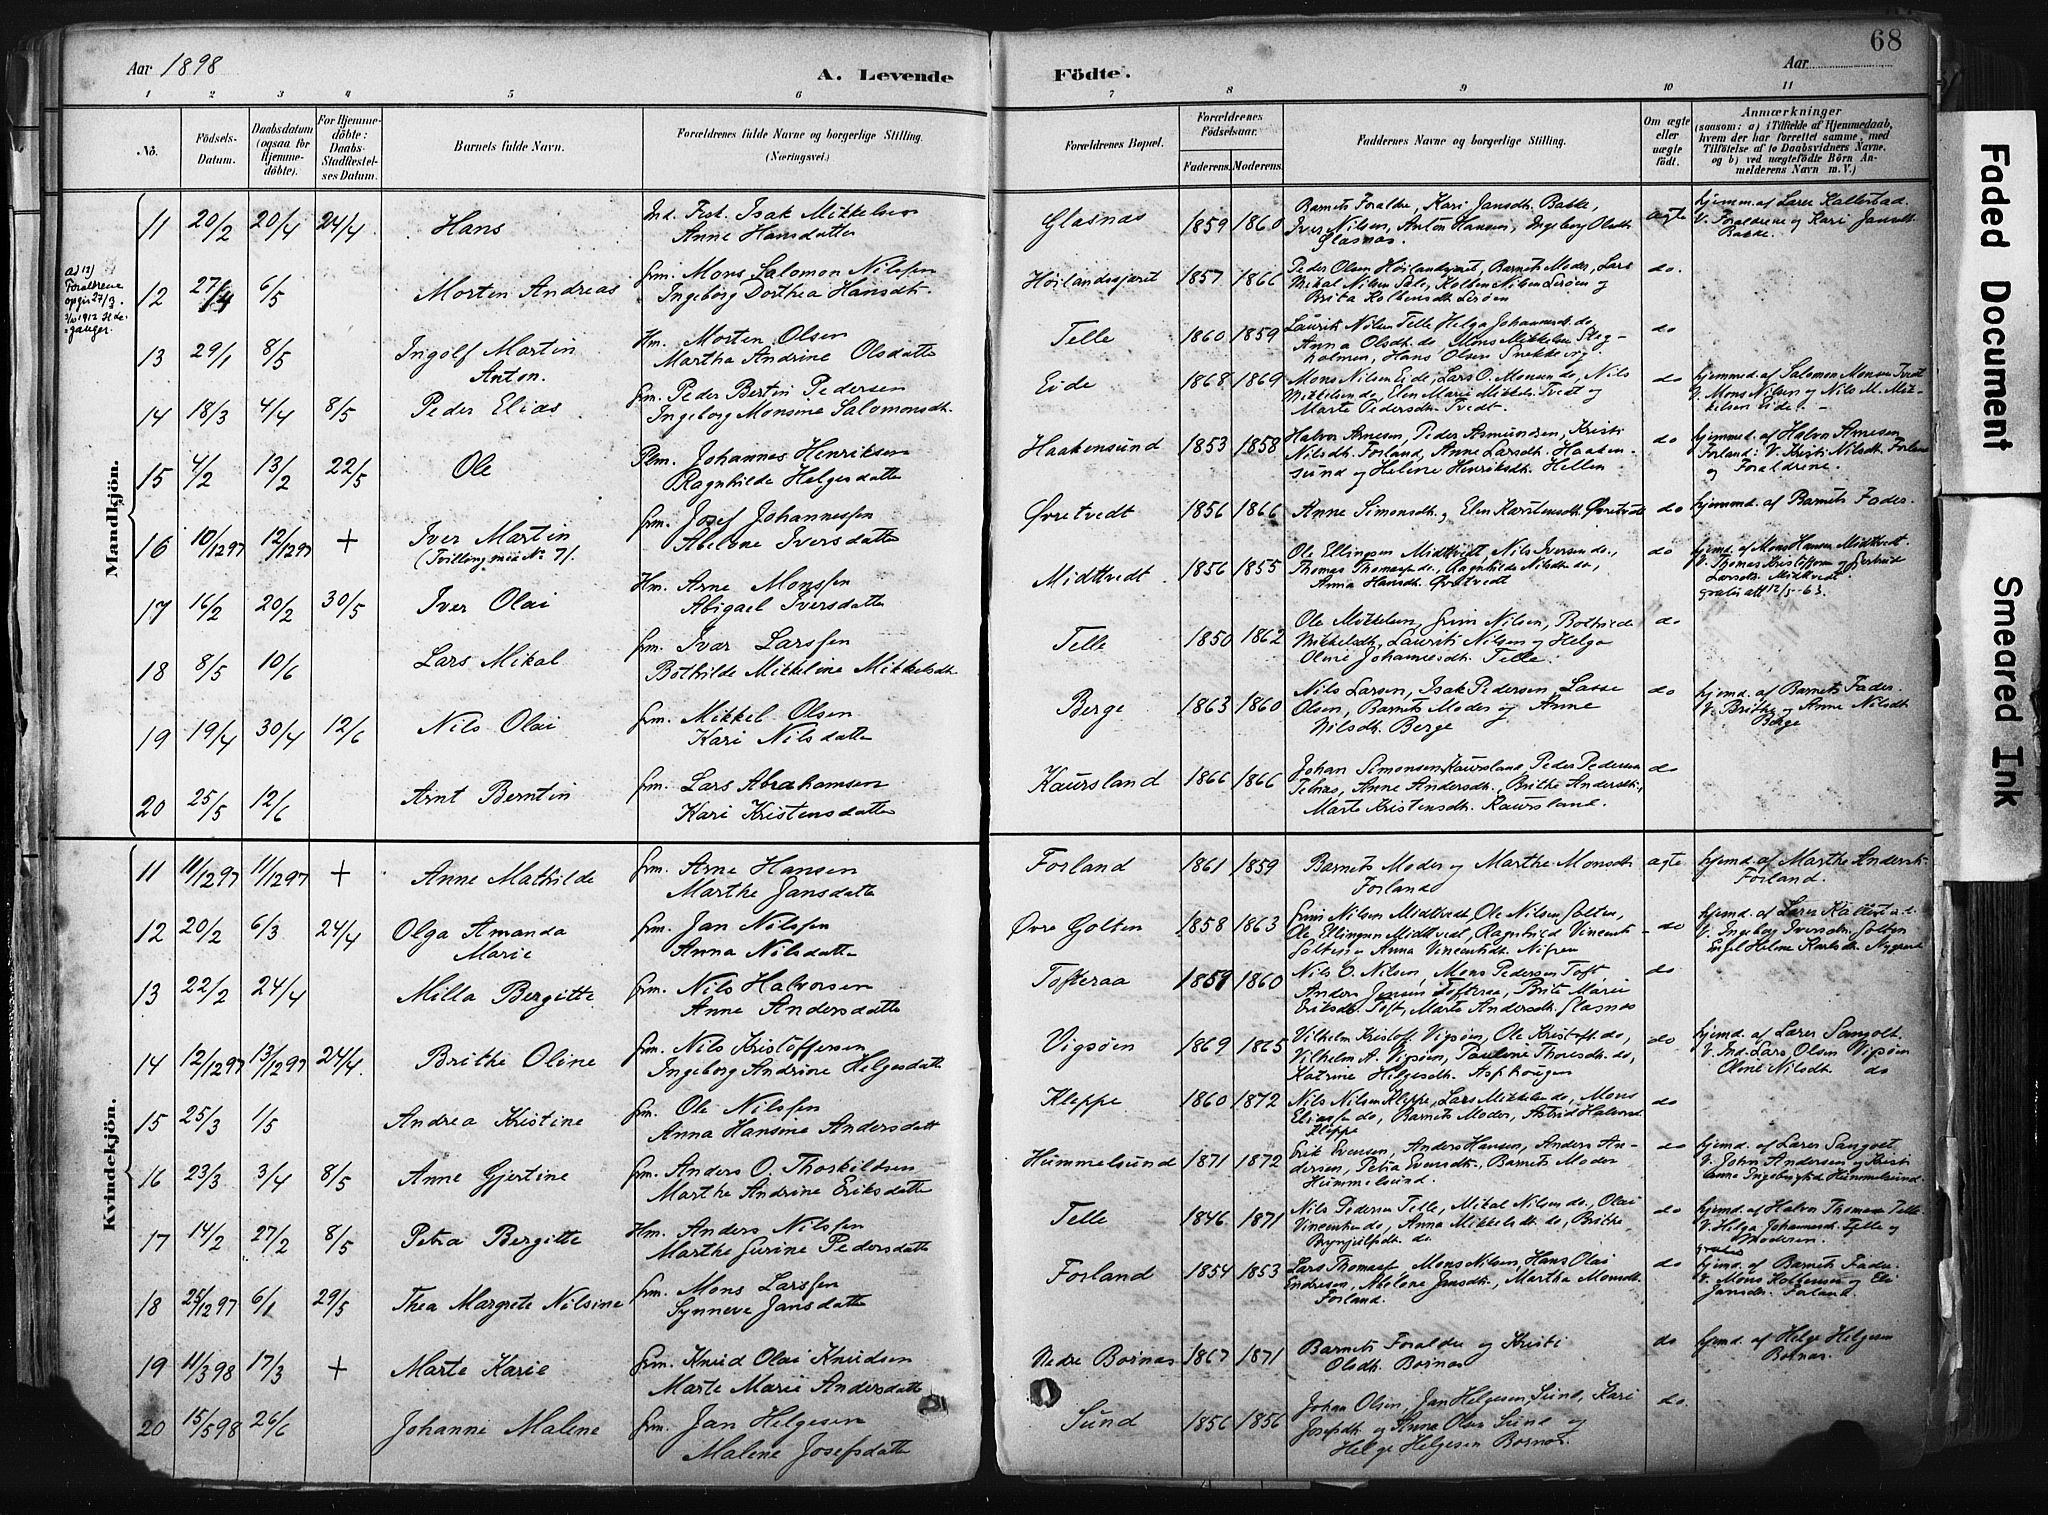 68
Aar 1898
A. Levende Födte.
Aar
1 2 3 4 5 6 7 8 9 10 11
No.
Födsels-Datum.
Daabsdatum (ogsaa for Hjemmedöbte).
For Hjemmedöbte: Daabs-Stadfæstelses Datum.
Barnets fulde Navn.
Forældrenes fulde Navne og borgerlige Stilling.
(Næringsvei.)
Forældrenes Bopæl.
Forældrenes Födselsaar.
Faderens. Moderens.
Faddernes Navne og borgerlige Stilling.
Om ægte eller uægte födt.
Anmærkninger
(saasom: a) i Tilfælde af Hjemmedaab, hvem der har forrettet samme, med Tilföielse af to Daabsvidners Navne, og b) ved uægtefödte Börn Anmelderens Navn m. V.)
Mandkjön.
11 20/2 20/4 24/4 Hans Ind. Fest. Isak Mikkelsen
Anne Hansdatter
Glasnæs 1859 1860 Barnets Forældre, Kari Jansdt. Bakke,
Iver Nilsen, Anton Hansen, Ingeborg Olsdt.
Glasnæs.
ægte
hjemm. af Lærer Kallestad.
V. Forældrene og Kari Jansdt.
Bakke.
ad 12)
Forældrene
opgir 27/3.
12 27/4 6/5 Morten Andreas frm. Mons Salomon Nilsen
Ingeborg Dorthea Hansdt.
1857 1866 Peder Olsen, Barnets Moder, Lars
Mikal Nilsen, Kolben Nilsen Lerøen og
Brita Kolbensdt. Lerøen
do.
13 29/1 8/5 Ingolf Martin
Anton.
Hm. Morten Olsen
Martha Andrine Olsdatter
Telle 1860 1859 Laurits Nilsen Telle, Helga Johannesdt. do,
Anna Olsdt. do, Mons Mikkelsen
Hans Olsen
do
14 18/3 4/4 8/5 Peder Elias frm. Peder Bertin Pedersen
Ingeborg Monsine Salomonsdt.
Eide 1868 1869 Mons Nilsen Eide, Lars O. Monsen do, Nils
Mikkelsen do, Elen Marie Mikkelsdt. Tvedt og
Marte Pedersdt. Tvedt.
do
hjemmed. af Salomon Monsen Tvedt
V. Mons Nilsen og Nils M. Mikkelsen
Eide.
15 4/2 13/2 22/5 Ole Plm. Johannes Henriksen
Ragnhilde Helgesdatter
Haakensund 1853 1858 Halvor Arnesen, Peder Asmundsen, Kristi
Nilsdt. Forland, Anne Larsdt. Haakensund
og Helene Henriksdt. Hellen
do
hjemmed. af Halvor Arnesen
Forland: V. Kristi Nilsdt. Forland
og Forældrene.
16 10/12 97 12/12 97 + Iver Martin
(Tvilling med No 7).
frm. Josef Johannessen
Abelone Iversdatter
Øvretvedt 1856 1866 Anne Simonsdt. og Elen Karstensdt. Øvretvedt
do
hjemmd. af Barnets Fader.
17 16/2 20/2 30/5 Iver Olai Hm. Arne Monssen
Abigael Iversdatter
Midttvedt 1856 1855 Ole Ellingsen Midttvedt, Nils Iversen do,
Thomas Thomassen do, Ragnhilde Nilsdt. do,
Anna Hansdt. Øvretvedt
do
hjmd. af Mons Hansen Midttvedt
V. Thomas Kristoffersen og
Larsdt. Midttvedt.
gratis att 12/5-63.
18 8/5 10/6 Lars Mikal frm. Ivar Larssen
Bothilde Mikkeline Mikkelsdt.
Telle 1850 1862 Ole Mikkelsen, Nilsen, Bothilde
Mikkelsdt., Laurits Nilsen og Helga
Oline Johannesdt. Telle.
do
19 19/4 30/4 12/6 Nils Olai frm. Mikkel Olsen
Kari Nilsdatter
Berge 1863 1860 Nils Larsen, Isak Pedersen, Lasse
Olsen, Barnets Moder og Anne
Nilsdt. Berge
do
hjemd. af Barnets Fader.
V. Brithe og Anne Nilsdt
Berge
20 25/5 12/6 Arnt Berntin frm. Lars Abrahamsen
Kari Kristensdatter
Kaursland 1866 1866 Johan Simonsen Kaursland, Peder Pedersen
Anne Andersdt., Brithe Andersdt.,
Marte Kristensdt. Kaursland.
do
Kvindekjön.
11 11/12 97 11/12 97 + Anne Mathilde frm. Arne Hansen
Marthe Jansdatter
Forland 1861 1859 Barnets Moder og Marthe Monsdt.
Forland
ægte
hjemd. af Marthe Andersdt.
Forland.
12 20/2 6/3 24/4 Olga Amanda
Marie
frm. Jan Nilssen
Anna Nilsdatter
Øvre Golten 1858 1863 Nilsen Midttvedt, Ole Nilsen Golten,
Ole Ellingsen Midttvedt, Ragnhild Vincentsdt.
Golten, Anna Vincentsdt.
do
hjemd. af Lærer
V. Ingeborg Iversdt. Golten
13 22/2 24/4 Milla Bergitte frm. Nils Halvorsen
Anne Andersdatter
Tofteraa 1859 1860 Nils O. Nilsen, Mons Pedersen Toft,
Anders Jensen Tofteraa, Brite Marie
Eriksdt. Toft, Marte Andersdt. Glasnæs
do
14 12/12 97 13/12 97 24/4 Brithe Oline frm. Nils Kristoffersen
Ingeborg Andrine Helgesdatter
Vigsøen 1869 1865 Vilhelm Kristoff. Vigsøen, Ole Kristoff. do,
Vilhelm A. Vigsøen, Pauline Thoresdt. do,
Katrine Helgesdt.
do
hjemd. af Lærer Sangolt.
V. Ind. Lars Olsen Vigsøen
Oline Nilsdt. do
15 25/3 1/5 Andrea Kristine frm. Ole Nilssen
Anna Hansine Andersdatt
Kleppe 1860 1872 Nils Nilsen Kleppe, Lars Mikkelsen do, Mons
Eliassen do, Barnets Moder, Astrid Halvorsdt.
Kleppe
do
16 23/3 3/4 8/5 Anne Gjertine frm. Anders O. Thorkildsen
Marthe Andrine Eriksdatter
Hummelsund 1871 1872 Erik Evensen, Anders Hansen, Anders Andersen,
Petra Evensdt., Barnets Moder
Hummelsund.
do
hjemd. af Lærer Sangolt.
V. John Andersen og Kristi
Anne Ingebrigtsd Hummelsund.
17 14/2 27/2 8/5 Petra Bergitte Hm. Anders Nilssen
Marthe Gurine Pedersdatter
Telle 1846 1871 Nils Pedersen Telle, Mikal Nilsen do, Olai
Vincentsen do, Anna Mikkelsdt. do, Brithe
Brynjulfsdt. do
do
hjemd. af Halvor Thomasen Telle
V. Helga Johannesd. Telle og
Moderen.
gratis
18 25/12 97 6/1 29/5 Thea Margrete Nilsine frm. Mons Larssen
Synneve Jansdatter
Forland 1854 1853 Lars Thomass, Mons Nilsen, Hans Olai
Endresen, Malene Jansdt., Martha Monsdt.
Forland.
do
hjemd. af Barnets Fader.
V. Mons Kolbensen og Eli
Jansdt. Forland
19 11/3 98 17/3 + Marte Karie frm. Knud Olai Knudsen
Marte Marie Andersdatter
Nedre Bornæs 1867 1871 Barnets Forældre og Kristi
Olsdt. Bornæs
do
hjemd. af Helge Helgesen
Bornæs.
20 15/5 98 26/6 Johanne Malene frm. Jan Helgesen
Malene Josefsdatter
Sund 1856 1856 Johan Olsen, Jan Helgesen Sund, Kari
Josefsdt. og Anna Olsdt Sund og
Helge Helgesen Bornæs.
do.
Faded Document
Smeared Ink